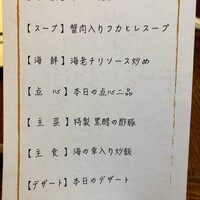 【スープ】蟹肉入りフカヒレスープ
【海鮮】海老チリソース炒め
【点心】本日の点心二品
【主菜】特製黒醋の酢豚
【主食】海の幸入り炒飯
【デザート】本日のデザート